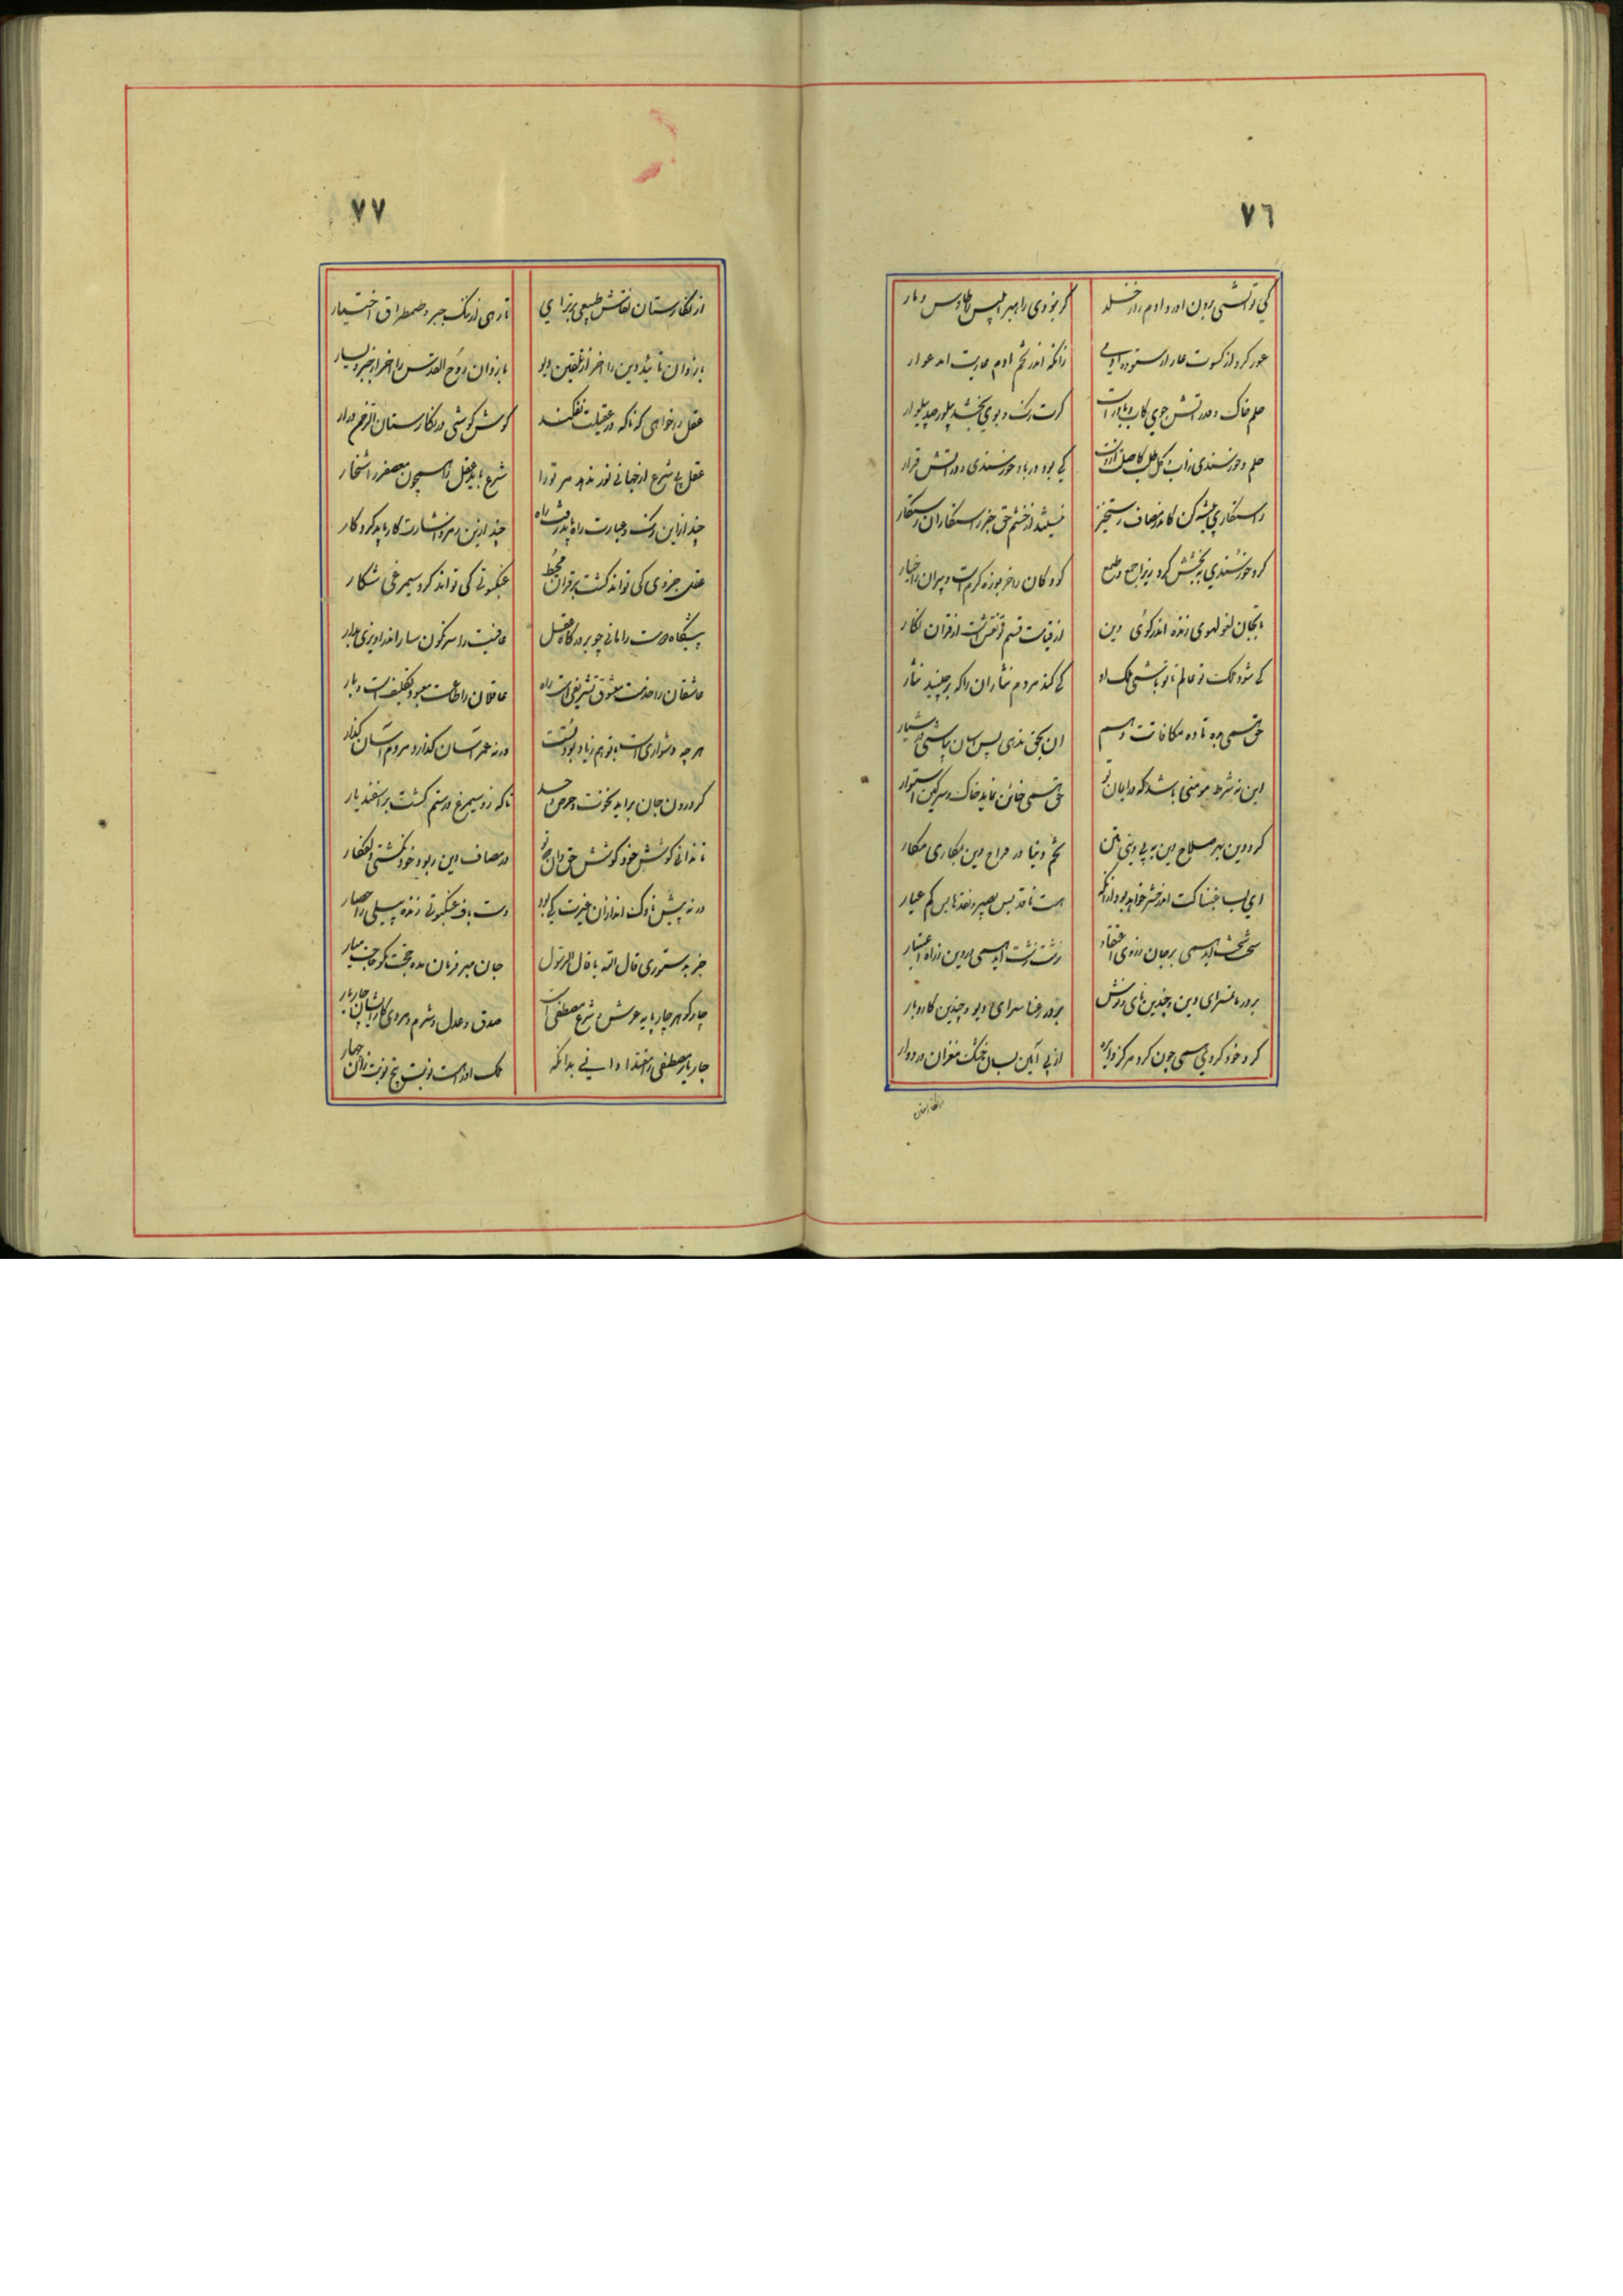 ٧٦
کی توانستی برون اورد ادم را ز خلد
کر نبودی راهبر ابلیس را طاوس و مار
عور کرد از کسوت عار
زانکه اندر تخم ادم عاریت امد عوار
حلم خاک و قدر اتش جوی کاب و باد راست
کرت رنک و بوی بخشد پیلور صد پیلوار
حلم و خورسندی
کی بود در باد خورسندی و در اتش قرار
راستکاری پیشه کن کاندر مصاف رستخیز
نیستند از خشم حق جز راستکاران رستکار
کرد خورسندی و بخشش کرد زیرا جمع و طمع
کودکان را خربوزه کرم است و پیران را خیار
بیجان لهوی زنده اندر کوی دین
از قیامت قسم تو نقش است از قران نکار
کی شود ملک تو عالم تا تو باشی ملک او
کی کند مردم نثار ان را که برچیند نثار
حق همی
ان بحق ندهی پس اسان بپاشی در شیار
این نه شرط مومنی باشد که در ایمان تو
حق همی خائن نماید خاک و سرکین استوار
کرد دین بهر صلاح دین به بی دینی متن
تخم دنیا در قراح دین بمکاری مکار
ای بسا غبنا کت اندر حشر خواهد بود از انک
هست ناقد بس بصیر و نقدها بس کم عیار
سخت سخت اید همی بر جان ز روی اعتقاد
زشت زشت اید همی در دین ز راه اعتبار
بر در ماتم سرای دین و چندین نای و نوش
بر در رعنا سرای دیو و چندین کار و بار
کرد خود کردی همی چون کرد مرکز دایره
از پی این بسان خشک مغزان در دوار
٧٧
از نکارستان نقاش طبیعی برتر ای
تا رهی از ننک جبر و طمطراق اختیار
باز دان تائید دین را اخر از تلقین دیو
باز دان روح القدس را اخر از
عقل را خواهی که ناکه در عقیلت نفکند
کوش کوشی در نکارستان
عقل بی شرع ان جهانی نور ندهد مر ترا
شرع باید عقل را همچون معصفر را شخار
چند ازین رنک و عبارت راه باید رفت راه
چند ازین رمز و اشارت کار باید کرد کار
عقل جزوی کی تواند کشت بر قران محیط
عنکبوتی کی تواند کرد سیمرغی شکار
پیشکاه دوست را مانی چو بر درکاه عقل
عافیت را سرنکون سار اندر اویزی بدار
عاشقان را خدمت معشوق تشریف است و راه
عاقلان را طاعت معبود تکلیف است و بار
هر چه دشواری است با تو هم ز باد بود تست
ورنه عمر اسان کذارد مردم اسان کذار
کر درون جان براید نخوت و حرص و حسد
تا که زو سیمرغ و رستم کشت بر اسفندیار
تا ندانی کوشش خود کوشش حق دان
در مصاف این دیو خود نکشتی ذوالفقار
ورنه پیش ناوک اندازان غیرت کی بود
دست باف عنکبوتی زنده پیلی را حصار
جز بدستوری قال الله یا قال الرسول
جان مبر فرمان مده حجت مکو حاجت میار
چار کوهر چار پایه عرش و شرع مصطفی است
صدق و عدل و شرم و مردی کار ایشان چار یار
چار یار مصطفی را مقتدا دانی بدانکه
ملک او راهست نوبت پنج نوبت زان چهار